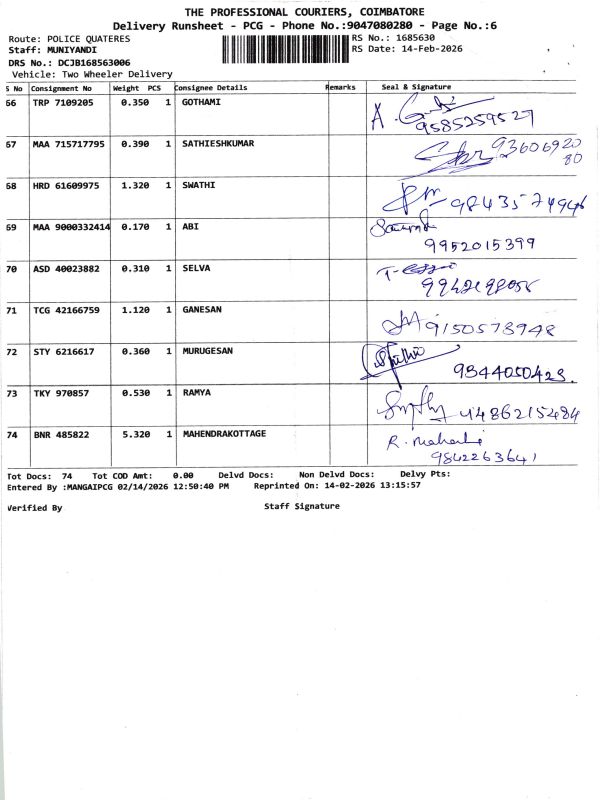 THE PROFESSIONAL COURIERS, COIMBATORE
Delivery Runsheet - PCG - Phone No.:9047080280 - Page No.:6
Route: POLICE QUATERES RS No.: 1685630
Staff: MUNIYANDI RS Date: 14-Feb-2026
DRS No.: DCJB168563006
Vehicle: Two Wheeler Delivery
S No Consignment No Weight PCS Consignee Details Remarks Seal & Signature
66 TRP 7109205 0.350 1 GOTHAMI
9585259527
67 MAA 715717795 0.390 1 SATHIESHKUMAR
93606920
80
68 HRD 61609975 1.320 1 SWATHI
9843574946
69 MAA 9000332414 0.170 1 ABI
9952015399
70 ASD 40023882 0.310 1 SELVA
71 TCG 42166759 1.120 1 GANESAN
9150573948
72 STY 6216617 0.360 1 MURUGESAN
9344050423.
73 TKY 970857 0.530 1 RAMYA
74 BNR 485822 5.320 1 MAHENDRAKOTTAGE
9842263641
Tot Docs: 74 Tot COD Amt: 0.00 Delvd Docs: Non Delvd Docs: Delvy Pts:
Entered By :MANGAIPCG 02/14/2026 12:50:40 PM Reprinted On: 14-02-2026 13:15:57
Verified By Staff Signature